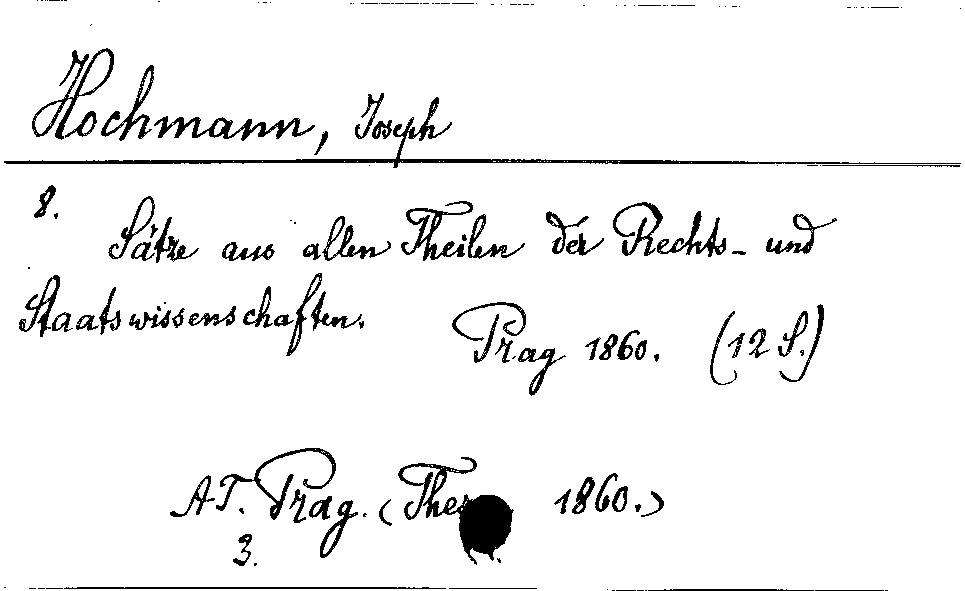 Hochmann, Joseph
8.
Sätze aus allen Theilen der Rechts- und
Staatswissenschaften.
Prag 1860. (12 S.)
AT. Prag. (Thes 1860.)
3.